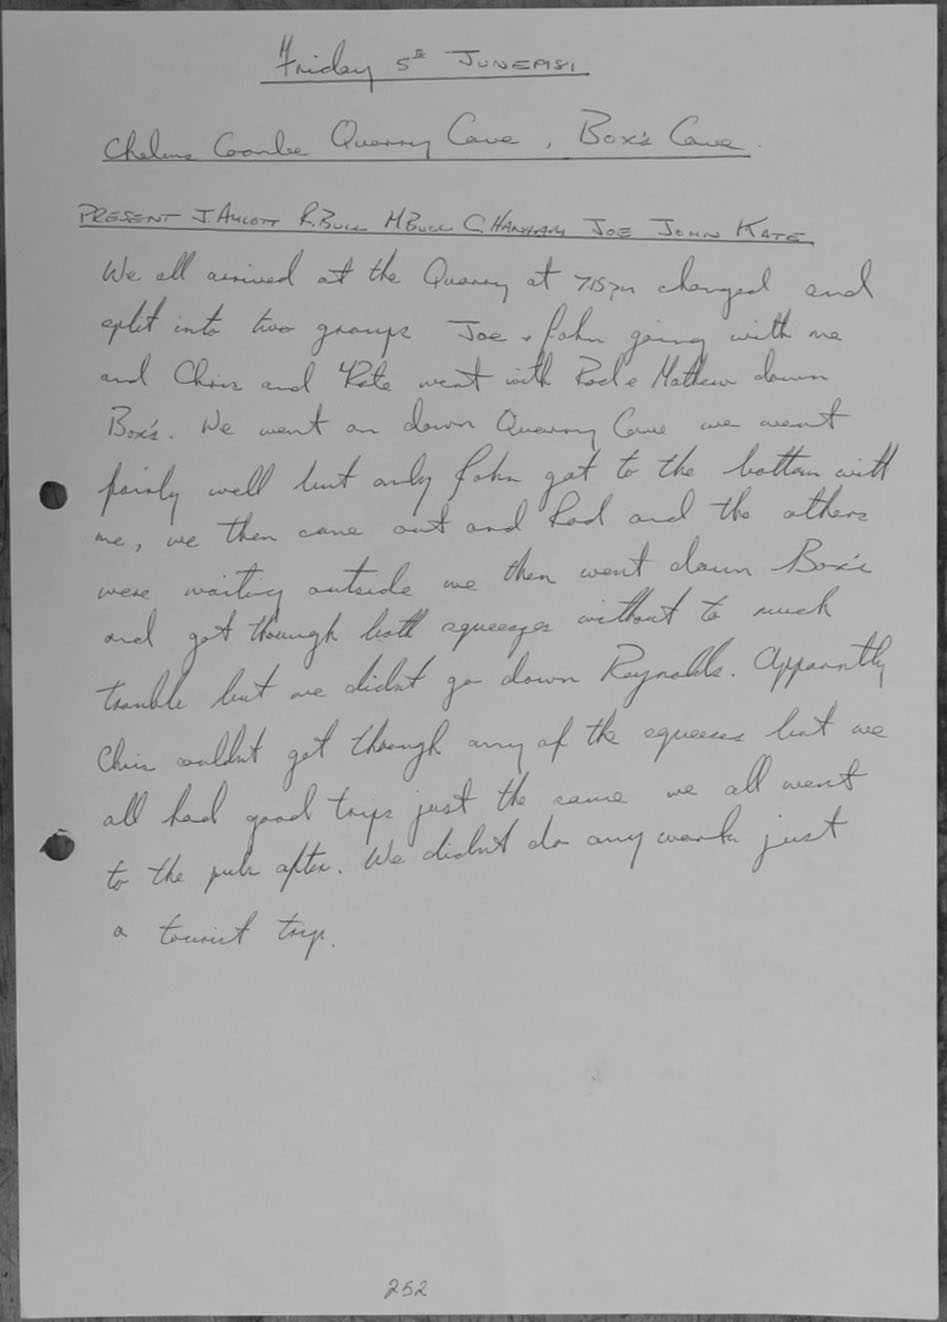 Friday 5th JUNE 1981
Chelms Coombe Quarry Cave, Box's Cave.
PRESENT J. AYLOTT R. BULL M BULL C. HANHAM JOE JOHN KATE
We all arrived at the Quarry at 7.15pm changed and
split into two groups Joe + John going with me
and Chris and Kate went with Rod & Mathew down
Box's. We went on down Quarry Cave we went
fairly well but only John got to the bottom with
me, we then came out and Rod and the others
were waiting outside we then went down Box's
and got through both squeezes without to much
trouble but we didnt go down Reynolds. Apparantly
Chris couldnt get through any of the squeezes but we
all had good trips just the same we all went
to the pub after. We didnt do any work just
a tourist trip.
252